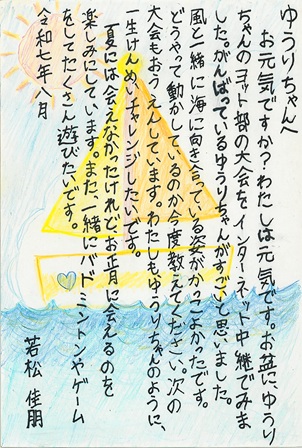 ゆうりちゃんへ
お元気ですか？わたしは元気です。お盆に、ゆうり
ちゃんのヨット部の大会をインターネット中継でみま
した。がんばっているゆうりちゃんがすごいと思いました。
風と一緒に海に向き合っている姿がかっこよかったです。
どうやって動かしているのか今度教えてください。次の
大会もおうえんしています。わたしもゆうりちゃんのように、
一生けんめいチャレンジしたいです。
夏には会えなかったけれどお正月に会えるのを
楽しみにしています。また一緒にバドミントンやゲーム
をしてたくさん遊びたいです。
令和七年八月
若松 佳朋